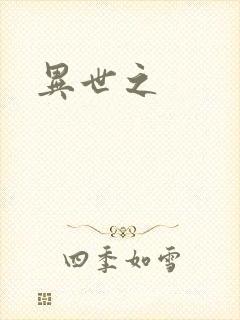 異世之
四季如雪